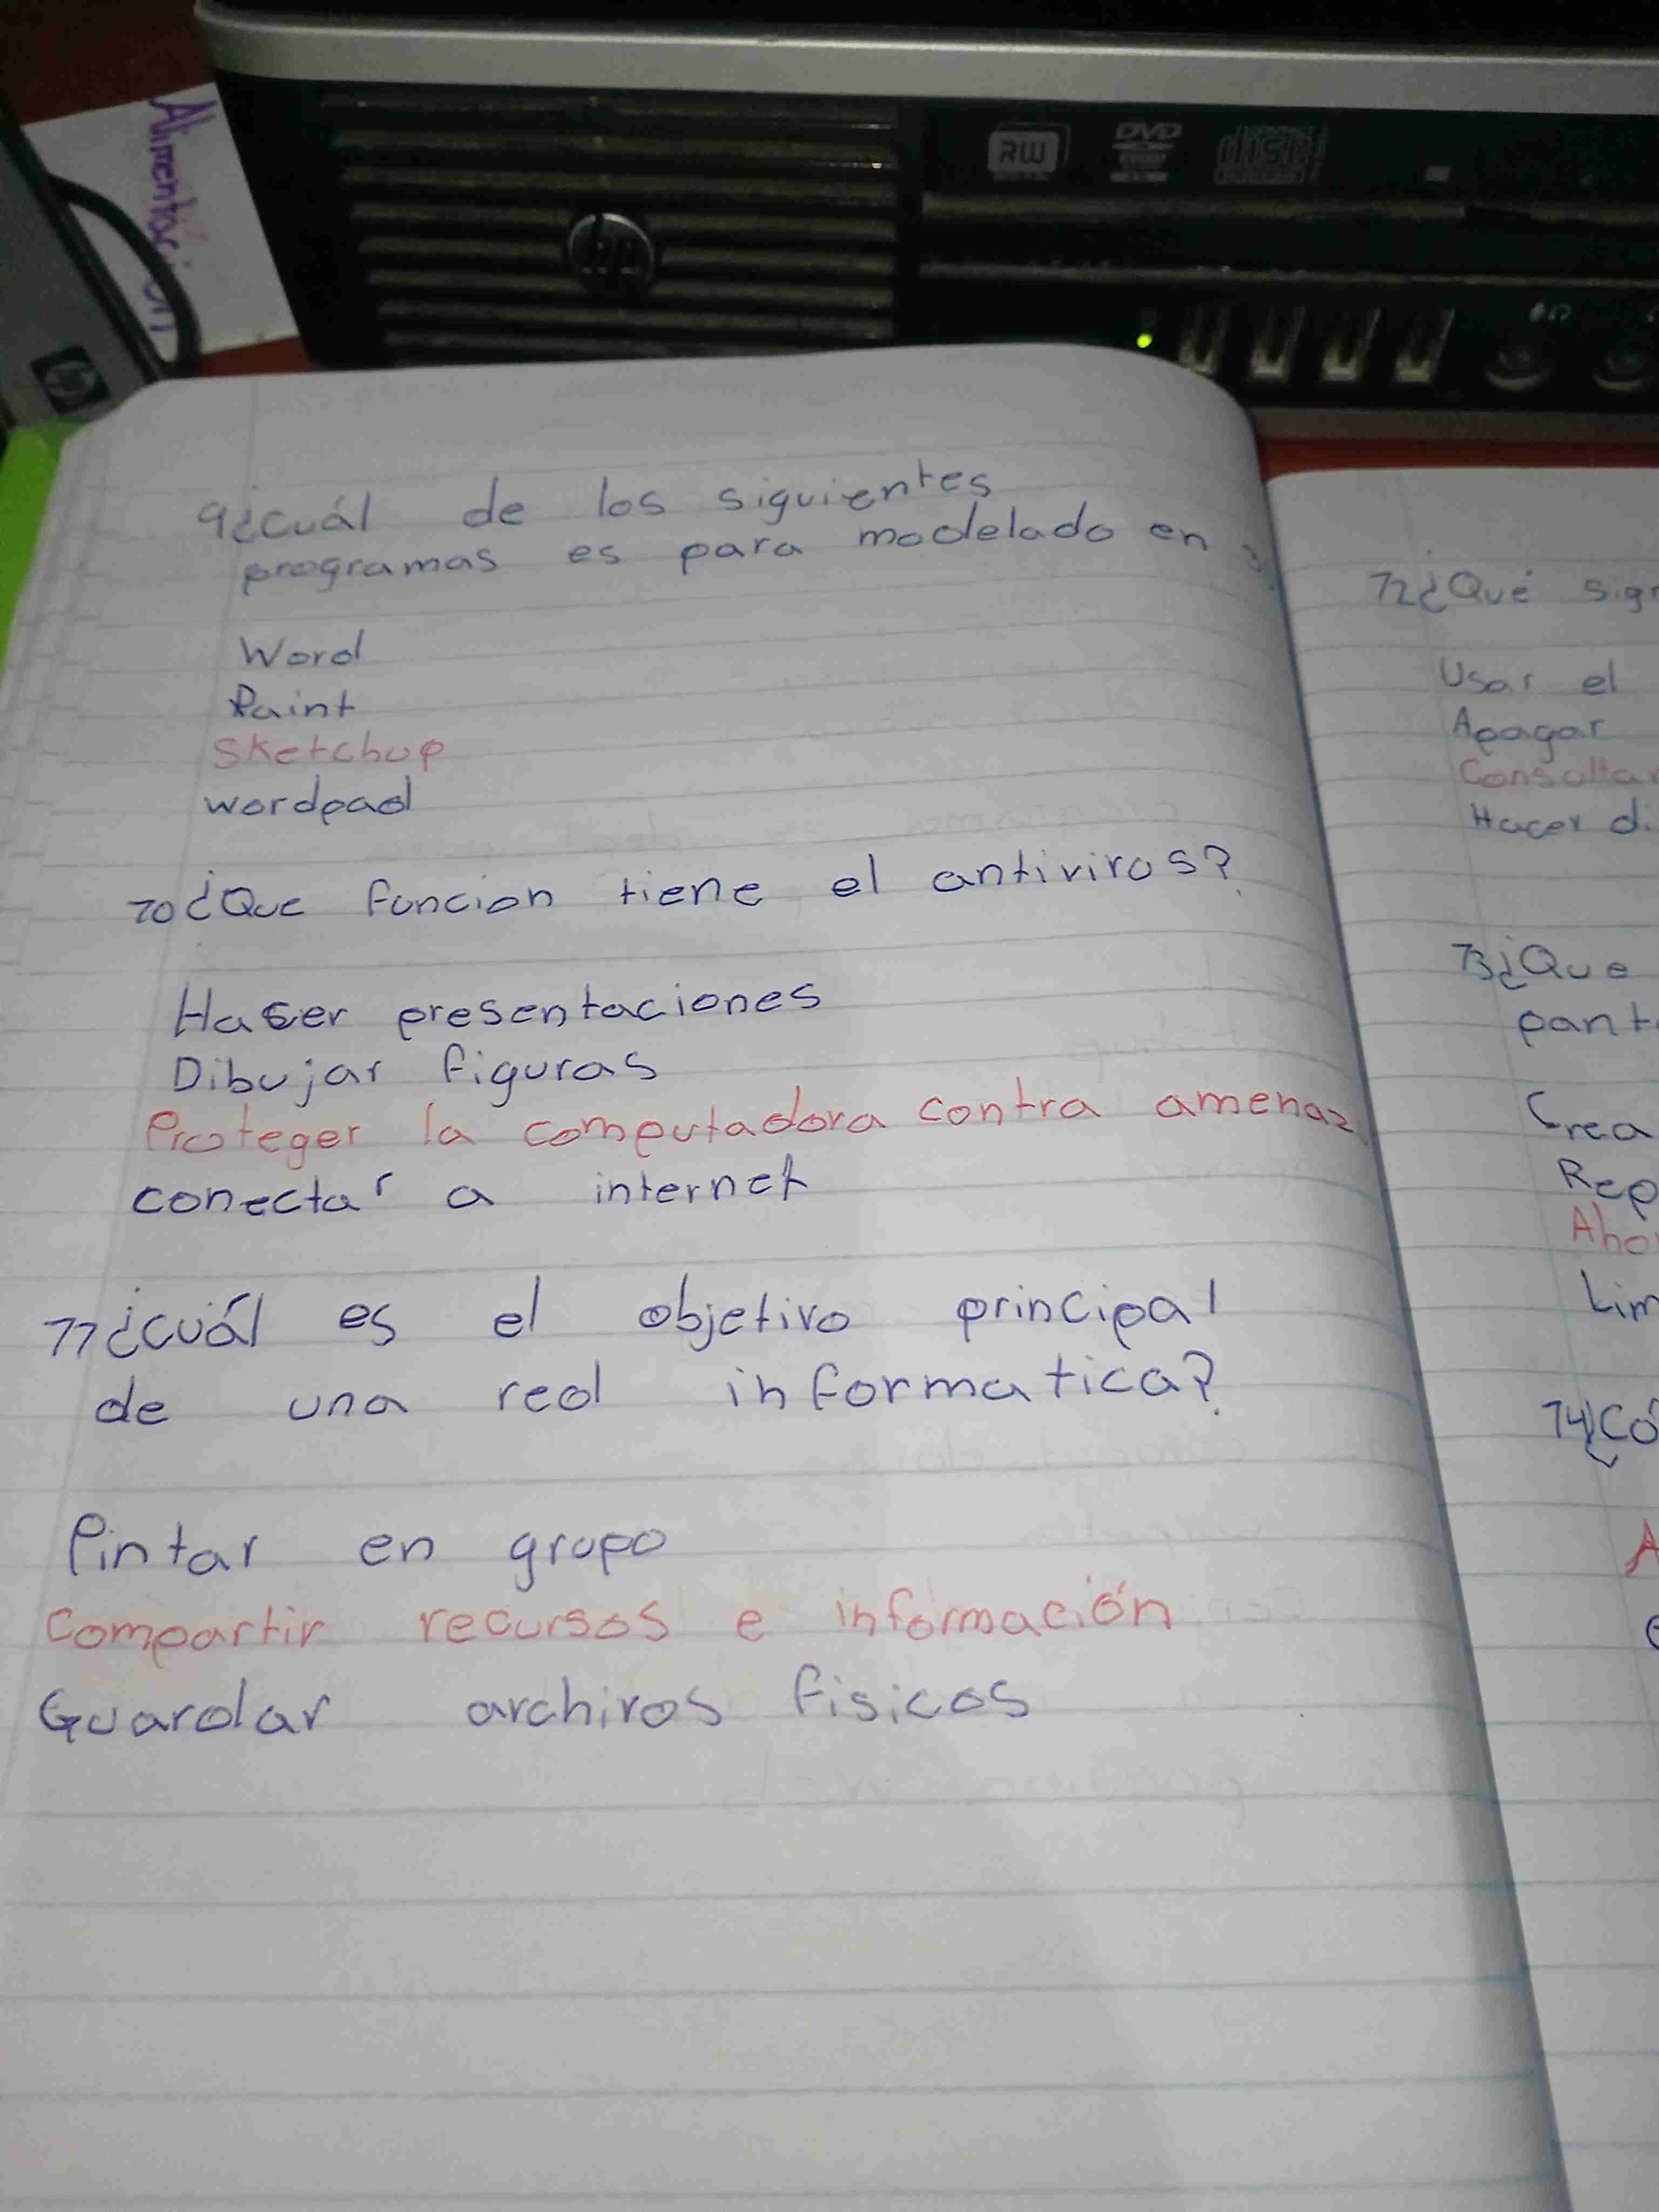 Alimentación
RW
DVD
disc
hp
9¿cuál de los siguientes
programas es para modelado en 3
Word
Paint
Sketchup
wordpad
70¿Que funcion tiene el antivirus?
Hacer presentaciones
Dibujar figuras
Proteger la computadora contra amenaz
conectar a internet
71¿cuál es el objetivo principal
de una red informatica?
Pintar en grupo
Compartir recursos e información
Guardar archivos fisicos
72¿Qué sig
Usar el
Apagar
Consultar
Hacer di
73¿Que
pant
Crea
Rep
Aho
Lim
74¿Có
A